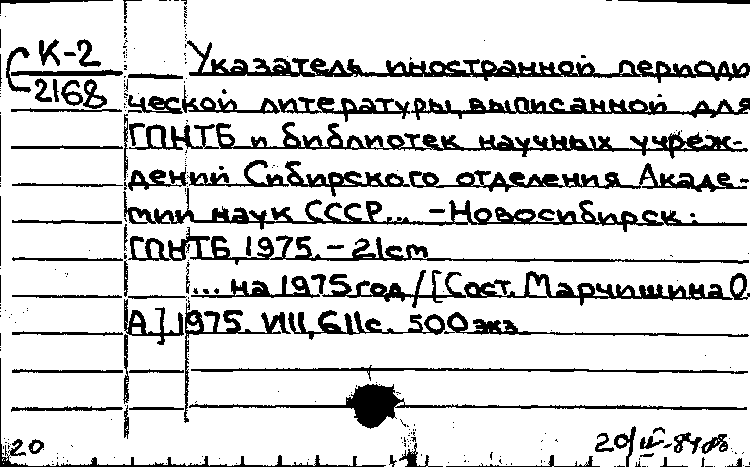 К-2
2168
Указатель иностранной периоди
ческой литературы, выписанной для
ГПНТБ и библиотек научных учреж-
дений Сибирского отделения Акаде-
мии наук СССР... -Новосибирск:
ГПНТБ, 1975. - 21cm
... на 1975 год / [Сост. Марчишина О.
А.]. 1975. VIII, 611с. 500 экз.
20
20/